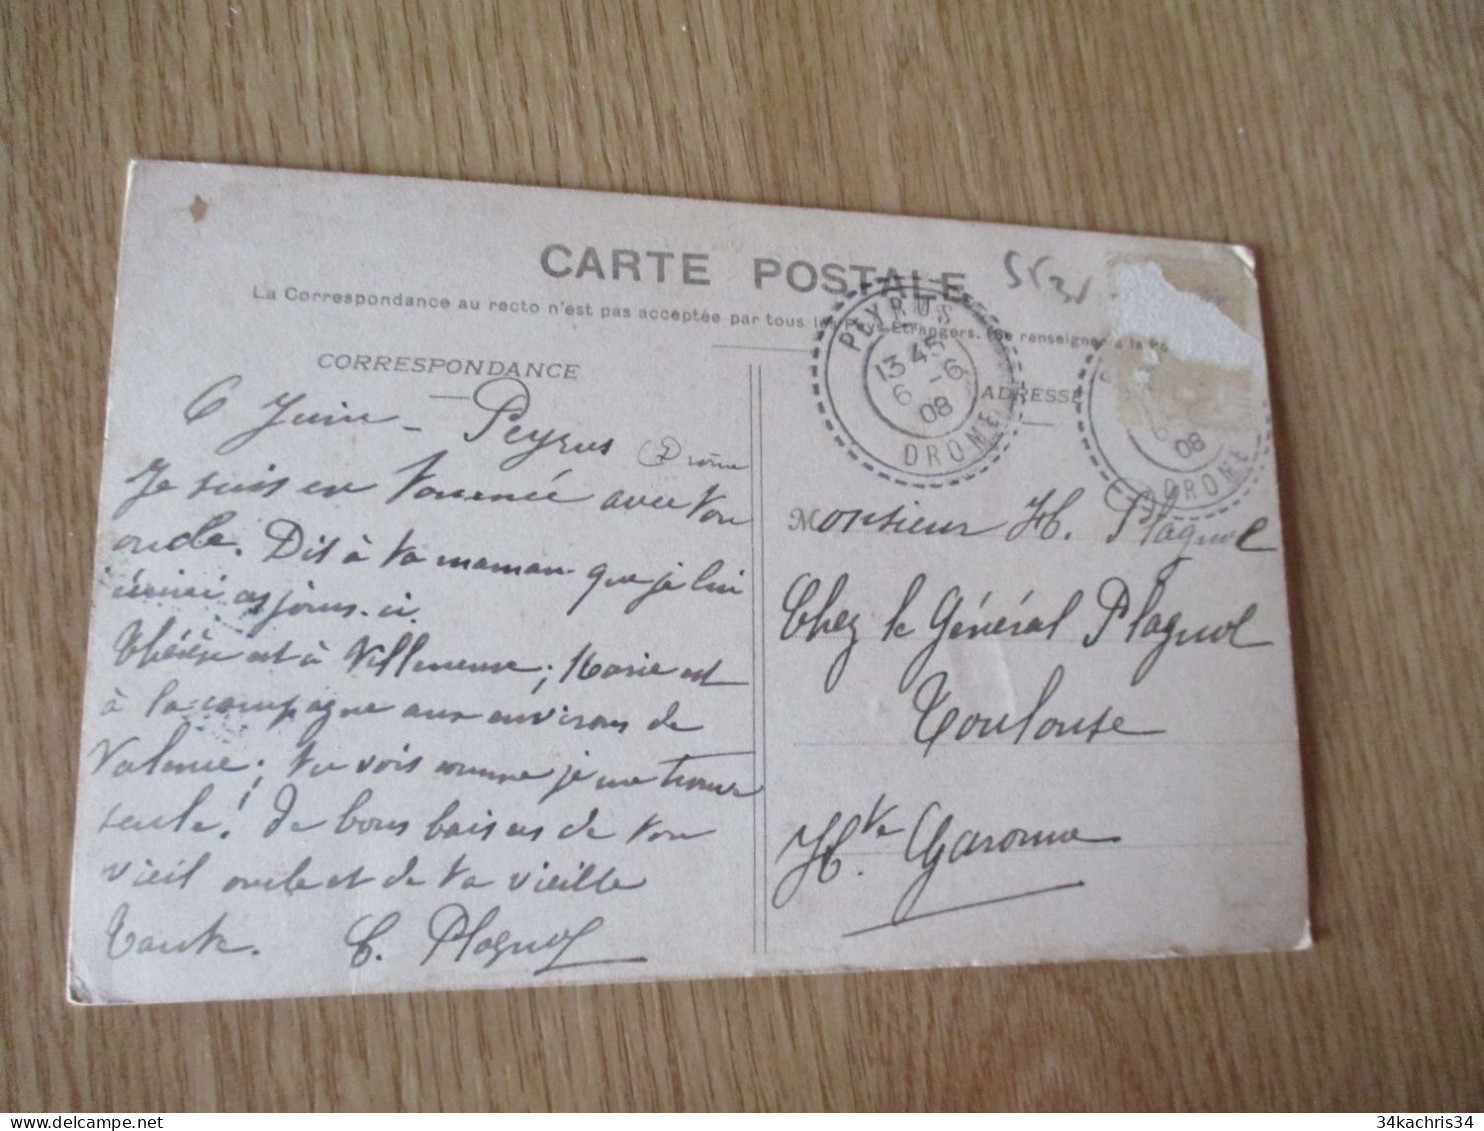 CARTE POSTALE
La Correspondance au recto n'est pas acceptée par tous les Pays Etrangers. (Se renseigner à la
CORRESPONDANCE
ADRESSE
PEYRUS
13 45
6 - 6
08
DROME
08
DROME
6 Juin - Peyrus (Drôme
Je suis en tournée avec ton
oncle. Dis à ta maman que je lui
écrirai ces jours-ci.
Thérèse est à Villeneuve; Marie est
à la campagne aux environs de
Valence; tu vois comme je me trouve
seule! De bons baisers de ton
vieil oncle et de ta vieille
tante. C. Plagnol
Monsieur H. Plagnol
Chez le Général Plagnol
Toulouse
Hte Garonne
34kachris34